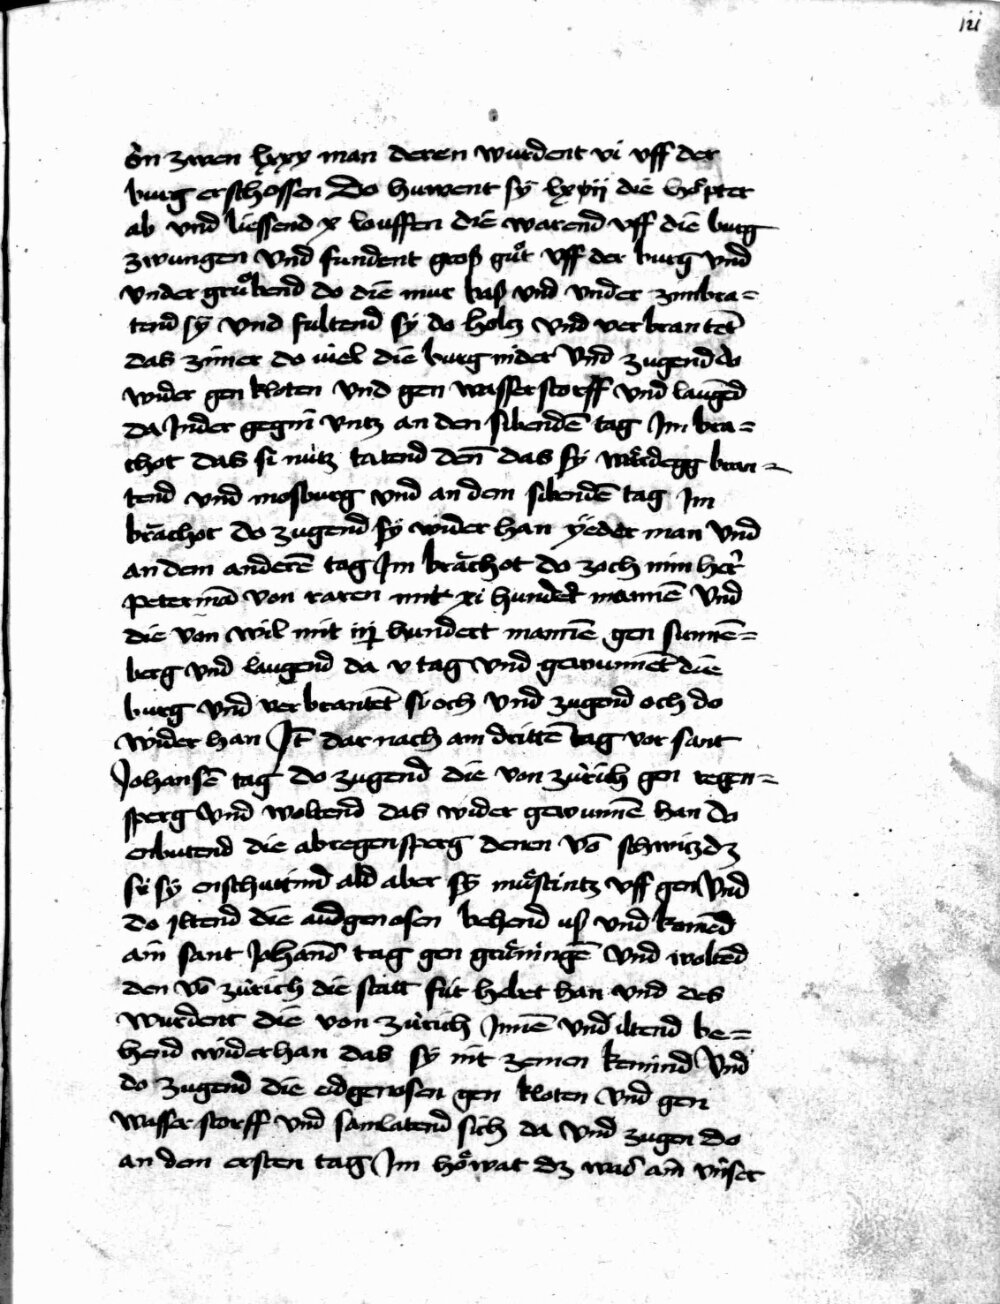 121
on zwen lxxx man deren wurdent vi vff der
burg erschossen Do huwent sÿ lxxii die höpter
ab vnd liessend x louffen die warend vff die burg
zwungen vnd fundent groß guͦt vff der burg vnd
vnder gruͦbend do die mur bas vnd vnder zimbra=
tend sÿ vnd fultend sy do holcz vnd verbrantet
das zimer do viel die burg nider vnd zugend do
wider gen kloten vnd gen wasserstorff vnd laugēd
da Jnder gegni vntz an den sibendē tag Jm bra=
chot das si nütz tatend den̄ das sy wärdegg bran=
tend vnd mosburg vnd an dem sibendē tag Jm
brāchot do zugend sy wider han yeder man vnd
an dem anderē tag Jm brāchot do zoch min her
petermā von raren mit xi hundert mannē vnd
die von wil mit iiij hundert mannē gen sunnē=
berg vnd laugend da v tag vnd gewunnēt die
burg vnd verbrantēt si och vnd zugend och do
wider han Jt̄ dar nach am drittē tag vor sant
Johansē tag do zugend die von zürich gen regen=
sperg vnd woltend das wider gewunnē han do
enbutend die ab regensperg denen vō schwitz dz
si sÿ enschuttind ald aber sÿ müstintz vff gen vnd
do Jltend die aidgenosen behend us vnd komēd
am sant Johans tag gen grüningē vnd woltēd
den vō zürich die statt für hebet han vnd des
wurdent die von zürich Jnnē vnd iltend be=
hend widerhan das sÿ nit zemen kemind vnd
do zugend die eidgenosen gen kloten vnd gen
wasserstorff vnd samlatend sich da vnd zugen do
an dem ersten tag Jm höwat dz was am vnser